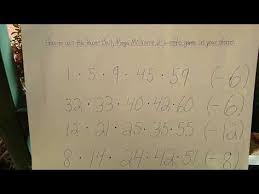 How to win the Powerball, Mega Millions & Lotto game in your state
1 · 5 · 9 · 45 · 59 (-6)
32 · 33 · 40 · 42 · 60 (-6)
12 · 21 · 25 · 35 · 55 (-12)
8 · 14 · 24 · 42 · 51 (-8)